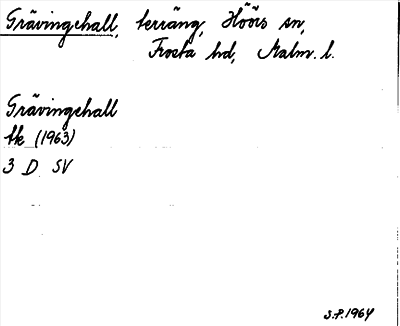 Grävingehall, terräng, Höörs sn,
Frosta hd, Malm. l.
Grävingehall
tk (1963)
3 D SV
S.P. 1964